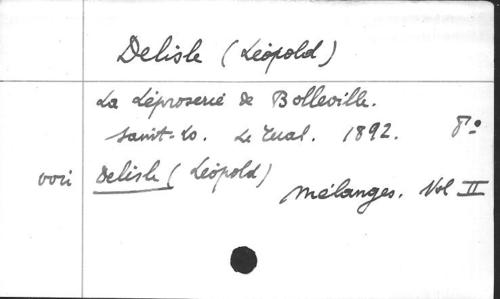 Delisle (Léopold)
La Léproserie de Bolleville.
Saint-Lo. Le Tual. 1892. 8º
voir Delisle (Léopold)
Mélanges. Vol II